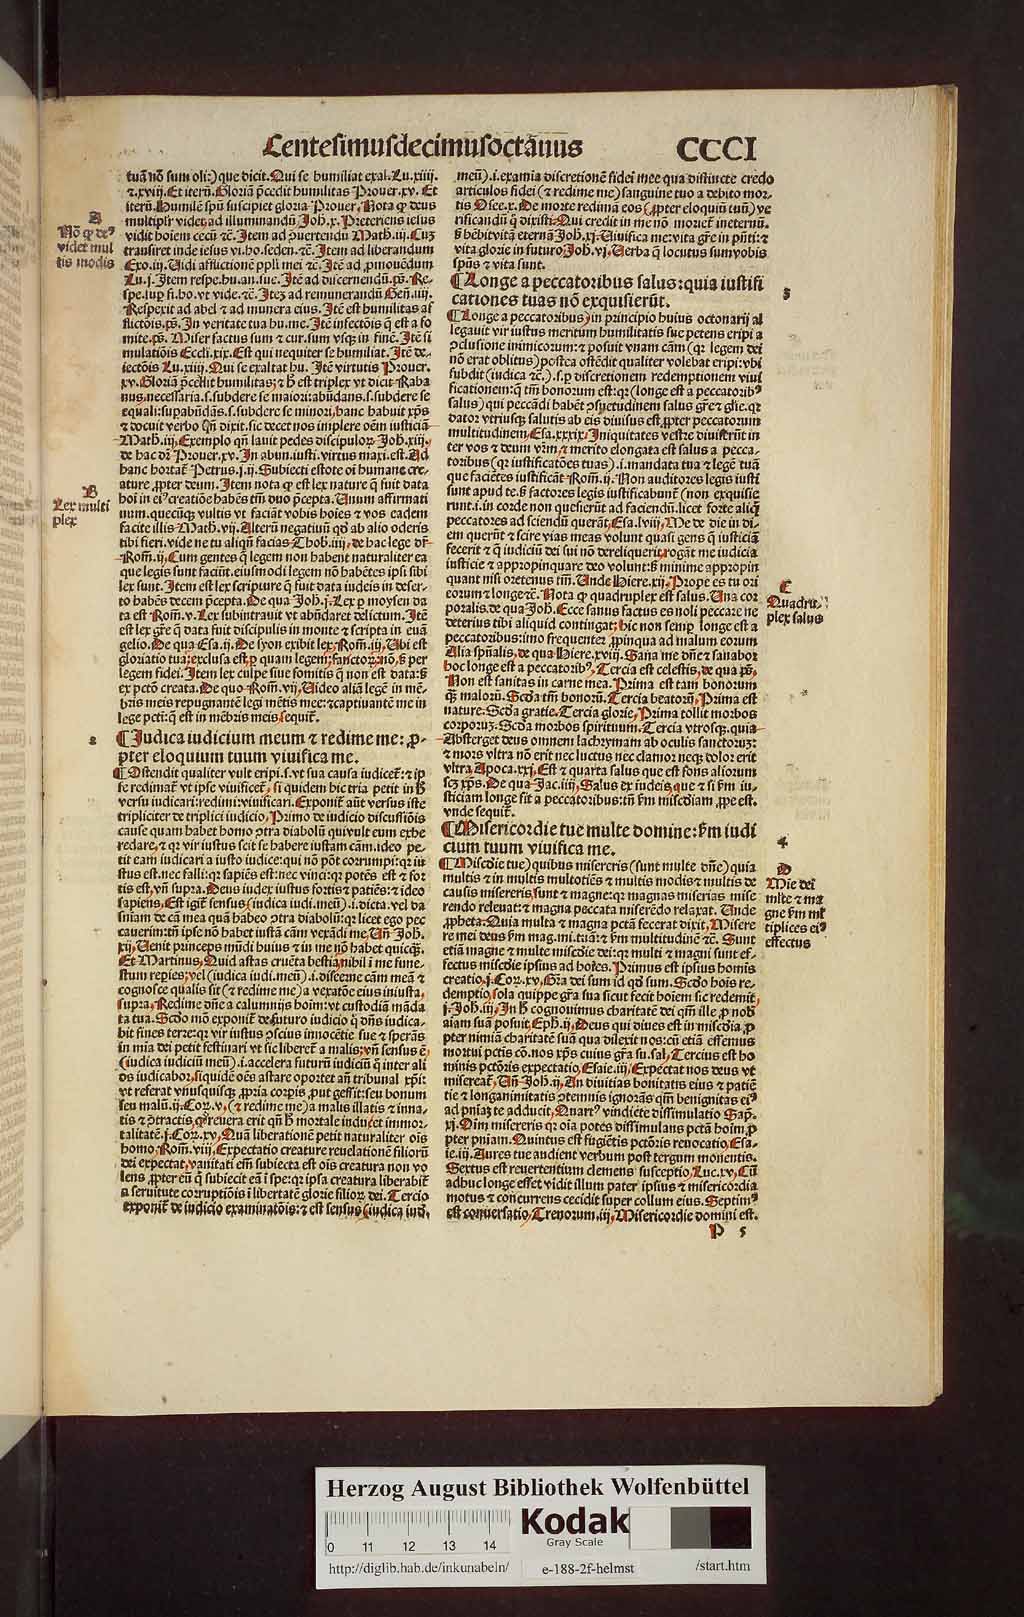 Centesimusdecimusoctauus CCCI
tuā nō sum oli:) que dicit. Qui se humiliat exal. Lu. xiiij.
⁊. xviij. Et iterū. Gloriā p̄cedit humilitas Prouer. xv. Et
iterū. Humilē spū suscipiet gloria Prouer. Nota ꝙ deus
multiplr videt, ad illuminandū Joh. x. Preteriens iesus
vidit hoiem cecū ⁊c. Item ad ꝯuertendu Math. iij. Cuꝫ
transiret inde iesus vi. ho. seden. ⁊c. Item ad liberandum
Exo. iij. Uidi afflictionē ppli mei ⁊c. Itē ad ꝓmouēdum
Lu. j. Item respe. hu. an. sue. Itē ad discernendū. ps. Re-
spe. sup fi. ho. vt vide. ⁊c. Iteꝫ ad remunerandū Gen̄. iiij.
Respexit ad abel ⁊ ad munera eius. Itē est humilitas af
flictōis. ps. In veritate tua hu. me. Itē infectōis q̄ est a fo
mite. ps. Miser factus sum ⁊ cur. sum vsqꝫ in finē. Itē si
mulatiōis Eccli. xix. Est qui nequiter se humiliat. Itē de-
iectōis Lu. xiiij. Qui se exaltat hu. Itē virtutis Prouer.
xv. Gloriā p̄cedit humilitas; ⁊ h̄ est triplex vt dicit Raba
nus, necessaria. s. subdere se maiori: abūdans. s. subdere se
equali: supabūdās. s. subdere se minori, hanc habuit xp̄s
⁊ docuit verbo qn̄ dixit. sic decet nos implere oēm iusticiā
Math. iij. Exemplo qn̄ lauit pedes discipuloꝝ Joh. xiij.
de hac dr̄ Prouer. xv. In abun. iusti. virtus maxi. est. Ad
hanc hortat̄ Petrus. j. ij. Subiecti estote oi humane cre-
ature ꝓpter deum. Item nota ꝙ est lex nature q̄ fuit data
hoi in eiꝰ creatiōe habēs tm̄ duo p̄cepta. Unum affirmati
num. quecūqꝫ vultis vt faciāt vobis hoies ⁊ vos eadem
facite illis Math. vij. Alterū negatiuū qd ab alio oderis
tibi fieri. vide ne tu aliqn̄ facias Thob. iiij, de hac lege dr̄
Rom̄. ij, Cum gentes q̄ legem non habent naturaliter ea
que legis sunt faciūt. eiusmodi legem nō habētes ipsi sibi
lex sunt. Item est lex scripture q̄ fuit data iudeis in deser-
to habēs decem p̄cepta. De qua Joh. j. Lex ꝑ moysen da
ta est Rom̄. v. Lex subintrauit vt abūdaret delictum. Itē
est lex grē q̄ data fuit discipulis in monte ⁊ scripta in euā
gelio. De qua Esa. ij. De syon exibit lex, Rom̄. iij, Ubi est
gloriatio tua; exclusa est, ꝑ quam legem; factoꝝ; nō, s̄ per
legem fidei. Item lex culpe siue fomitis q̄ non est data: s̄
ex pctō creata. De quo Rom̄. vij, Uideo aliā legē in mē-
bris meis repugnantē legi mētis mee: ⁊ captiuantē me in
lege peti: q̄ est in mēbris meis, sequit̄.
¶ Iudica iudicium meum ⁊ redime me: ꝓ-
pter eloquium tuum viuifica me.
¶ Ostendit qualiter vult eripi. s. vt sua causa iudicet̄: ⁊ ip
se redimat̄ vt ipse viuificet̄, si quidem hic tria petit in h̄
versu iudicari: redimi: viuificari. Exponit̄ aūt versus iste
tripliciter de triplici iudicio, Primo de iudicio discussiōis
cause quam habet homo ꝯtra diabolū qui vult eum exhe
redare, ⁊ qꝛ vir iustus scit se habere iustam cām. ideo pe-
tit eam iudicari a iusto iudice: qui nō pōt corrumpi: qꝛ iu
stus est. nec falli: qꝛ sapiēs est: nec vinci: qꝛ potēs est ⁊ for
tis est, vn̄ supra. Deus iudex iustus fortis ⁊ patiēs: ⁊ ideo
sapiens, Est igit̄ sensus (iudica iudi. meū) .i. dicta. vel da
sniam de cā mea quā habeo ꝯtra diabolū: qꝛ licet ego pec
cauerim: tn̄ ipse nō habet iustā cām vexādi me, Un̄ Joh.
xij, Uenit princeps mūdi huius ⁊ in me nō habet quicqꝫ.
Et Martinus, Quid astas cruēta bestia, nihil i me fune-
stum repies; vel (iudica iudi. meū) .i. discerne cām meā ⁊
cognosce qualis sit (⁊ redime me) a vexatōe eius iniusta,
supra, Redime dn̄e a calumnijs hoim: vt custodiā māda
ta tua. Scdo mō exponit̄ de futuro iudicio q̄ dn̄s iudica-
bit fines terre: qꝛ vir iustus ꝯscius innocētie sue ⁊ sperās
in mia dei petit festinari vt sic liberet̄ a malis; vn̄ sensus ē,
(iudica iudiciū meū) .i. accelera futurū iudiciū q̄ inter ali
os iudicabor, siquidē oēs astare oportet an̄ tribunal xpi:
vt referat vnusquisqꝫ ꝓpria corpis ꝓut gessit: seu bonum
seu malū. ij. Cor. v, (⁊ redime me) a malis illatis ⁊ inna-
tis ⁊ ꝯtractis, qꝛ reuera erit qn̄ h̄ mortale induet immor-
talitatē. j. Cor. xv, Quā liberationē petit naturaliter ois
homo, Rom̄. viij, Expectatio creature reuelationē filioꝝ
dei expectat, vanitati em̄ subiecta est ois creatura non vo
lens ꝓpter eū q̄ subiecit eā i spe: qꝛ ipsa creatura liberabit̄
a seruitute corruptiōis i libertatē glorie filioꝝ dei. Tercio
exponit̄ de iudicio examinatōis: ⁊ est sensus (iudica iud.
A
Nō ꝙ deꝰ
videt mul
tis modis
B
Lex multi
plex
2
meū) .i. examia discretionē fidei mee qua distincte credo
articulos fidei (⁊ redime me) sanguine tuo a debito mor-
tis Osee. x. De morte redimā eos (ꝓpter eloquiū tuū) ve
rificandū q̄ dixisti. Qui credit in me nō moriet̄ ineternū.
s̄ h̄ebit vitā eternā Joh. xj. Uiuifica me: vita grē in pn̄ti: ⁊
vita glorie in futuro Joh. vj. Uerba q̄ locutus sum vobis
spūs ⁊ vita sunt.
¶ Longe a peccatoribus salus: quia iustifi
cationes tuas nō exquisierūt.
¶ Longe a peccatoribus) in principio huius octonarij al
legauit vir iustus meritum humilitatis sue petens eripi a
ꝯclusione inimicorum: ⁊ posuit vnam cām (qꝛ legem dei
nō erat oblitus) postea ostēdit qualiter volebat eripi: vbi
subdit (iudica ⁊c.) .s. ꝑ discretionem redemptionem viui
ficationem: q̄ tm̄ bonorum est: qꝛ (longe est a peccatoribꝰ
salus) qui peccādi habēt ꝯsuetudinem salus grē ⁊ glie. qꝛ
dator vtriusqꝫ salutis ab eis diuisus est, ꝓpter peccatorum
multitudinem, Esa. xxxix, Iniquitates vestre diuiserūt in
ter vos ⁊ deum vrm̄, ⁊ merito elongata est salus a pecca-
toribus (qꝛ iustificatōes tuas) .i. mandata tua ⁊ legē tuā
que faciētes iustificāt Rom̄. ij. Non auditores legis iusti
sunt apud te. s̄ factores legis iustificabunt̄ (non exquisie
runt. i. in corde non quesierūt ad faciendū. licet forte aliq̄
peccatores ad sciendū querāt, Esa. lviij, Me de die in di-
em querūt ⁊ scire vias meas volunt quasi gens q̄ iusticiā
fecerit ⁊ q̄ iudiciū dei sui nō dereliquerit, rogāt me iudicia
iusticie ⁊ appropinquare deo volunt: s̄ minime appropin
quant nisi oretenus tm̄. Unde Hiere. xij, Prope es tu ori
eorum ⁊ longe ⁊c̄. Nota ꝙ quadruplex est salus. Una cor
poralis. de qua Joh. Ecce sanus factus es noli peccare ne
deterius tibi aliquid contingat: hic non semp longe est a
peccatoribus: imo frequenter, ꝓpinqua ad malum eorum
Alia spn̄alis, de qua Hiere. xviij. Sana me dn̄e ⁊ sanabor
hoc longe est a peccatoribꝰ, Tercia est celestis, de qua ps̄,
Non est sanitas in carne mea. Prima est tam bonorum
q̄ꝫ malorū. Scd̄a tm̄ bonorū. Tercia beatorū, Prima est
nature. Scd̄a gratie. Tercia glorie, Prima tollit morbos
corporuꝫ. Scd̄a morbos spirituum. Tercia vtrosqꝫ. quia
Absterget deus omnem lachrymam ab oculis sanctoruꝫ:
⁊ mors vltra nō erit nec luctus nec clamor neqꝫ dolor erit
vltra, Apoca. xxj, Est ⁊ quarta salus que est fons aliorum
scꝫ xp̄s. De qua Jac. iiij, Salus ex iudeis, que ⁊ si fm̄ iu-
sticiam longe sit a peccatoribus: tn̄ fm̄ misc̄diam ꝓpe est.
vnde sequit̄.
¶ Misericordie tue multe domine: fm̄ iudi
cium tuum viuifica me.
¶ Misc̄die tue) quibus misereris (sunt multe dn̄e) quia
multis ⁊ in multis multotiēs ⁊ multis modis ⁊ multis de
causis misereris, sunt ⁊ magne: qꝛ magnas miserias mise
rendo releuat: ⁊ magna peccata miserēdo relaxat. Unde
ꝓpheta: Quia multa ⁊ magna pctā fecerat dixit, Misere
re mei deus fm̄ mag. mi. tuā: ⁊ fm̄ multitudinē ⁊c̄. Sunt
etiā magne ⁊ multe misc̄die dei: qꝛ multi ⁊ magni sunt ef-
fectus misc̄die ipsius ad hoies. Primus est ipsius homis
creatio, j. Cor. xv, Gr̄a dei sum id qd sum. Scd̄o hois re-
demptio, sola quippe gr̄a sua sicut fecit hoiem sic redemit,
j. Joh. iij, In h̄ cognouimus charitatē dei qm̄ ille ꝓ nob̄
aiam suā posuit, Eph̄. ij, Deus qui diues est in misc̄dia, ꝓ
pter nimiā charitatē suā qua dilexit nos: cū etiā essemus
mortui pctis cō. nos xp̄s cuius gr̄a su. sal, Tercius est ho
minis pctōris expectatio, Esaie. iij, Expectat nos deus vt
misereat̄, Un̄ Joh. ij, An diuitias bonitatis eius ⁊ patiē
tie ⁊ longanimitatis ꝯtemnis ignorās qm̄ benignitas eiꝰ
ad pniaꝫ te adducit, Quartꝰ vindicte dissimulatio Sap̄.
xj. Oim misereris qꝛ oia potes dissimulans pctā hoim ꝓ
pter pniam. Quintus est fugiētis pctōris reuocatio, Esa-
ie. iij. Aures tue audient verbum post tergum monentis.
Sextus est reuertentium clemens susceptio, Luc. xv, Cū
adhuc longe esset vidit illum pater ipsius ⁊ misericordia
motus ⁊ concurrens cecidit super collum eius. Septimꝰ
est conuersatio, Trenorum. iij, Misericordie domini est.
P 5
3
C
Quadru-
plex salus
4
D
Mie dei
mlte ⁊ ma
gne fm̄ ml
tiplices eiꝰ
effectus
Herzog August Bibliothek Wolfenbüttel
0 11 12 13 14
Kodak
Gray Scale
http://diglib.hab.de/inkunabeln/ e-188-2f-helmst /start.htm